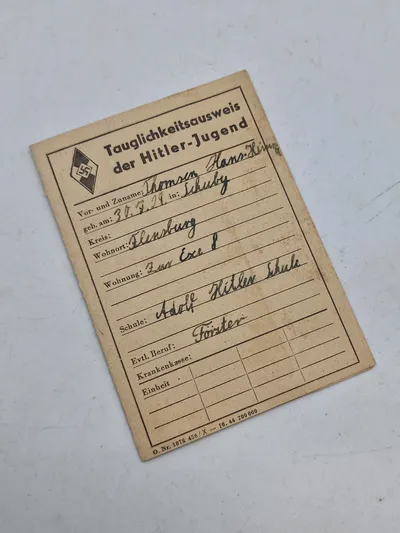 Tauglichkeitsausweis
der Hitler-Jugend
Vor- und Zuname: Thomsen Hans-Heinr
geb. am: in: Schuby
Kreis:
Wohnort: Flensburg
Wohnung: Zur Exe 8
Schule: Adolf Hitler Schule
Evtl. Beruf: Förster
Krankenkasse:
Einheit
O. Nr. 1078 456/X — 10. 44 200 000